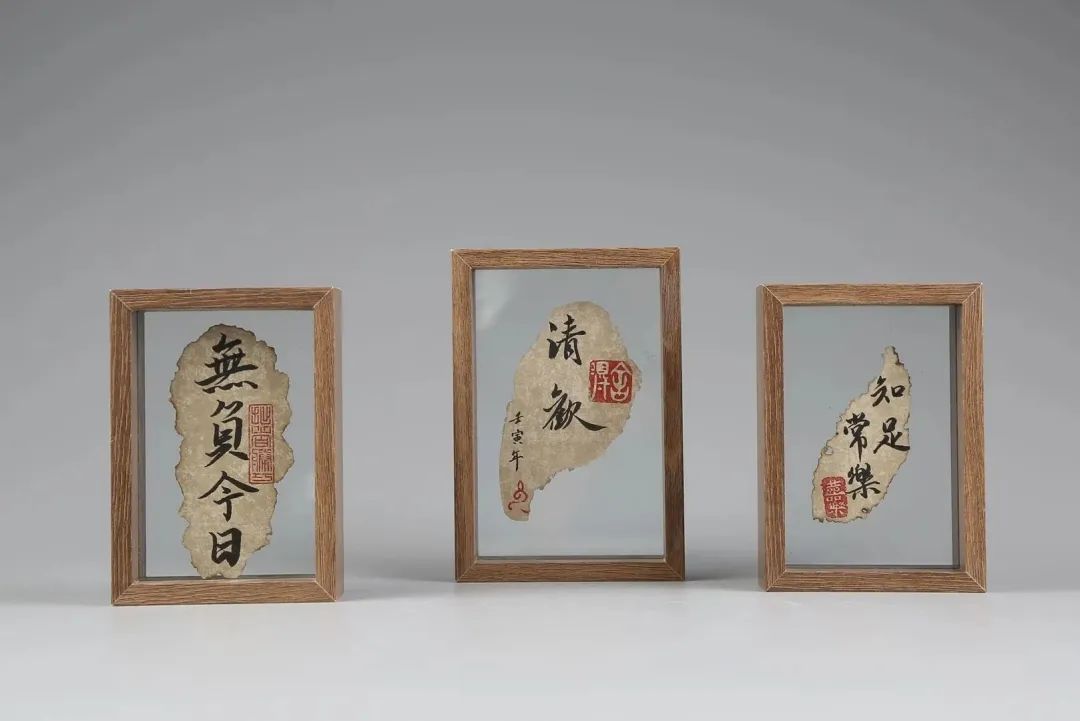 無負今日
清歡
壬寅年
舍得
知足
常樂